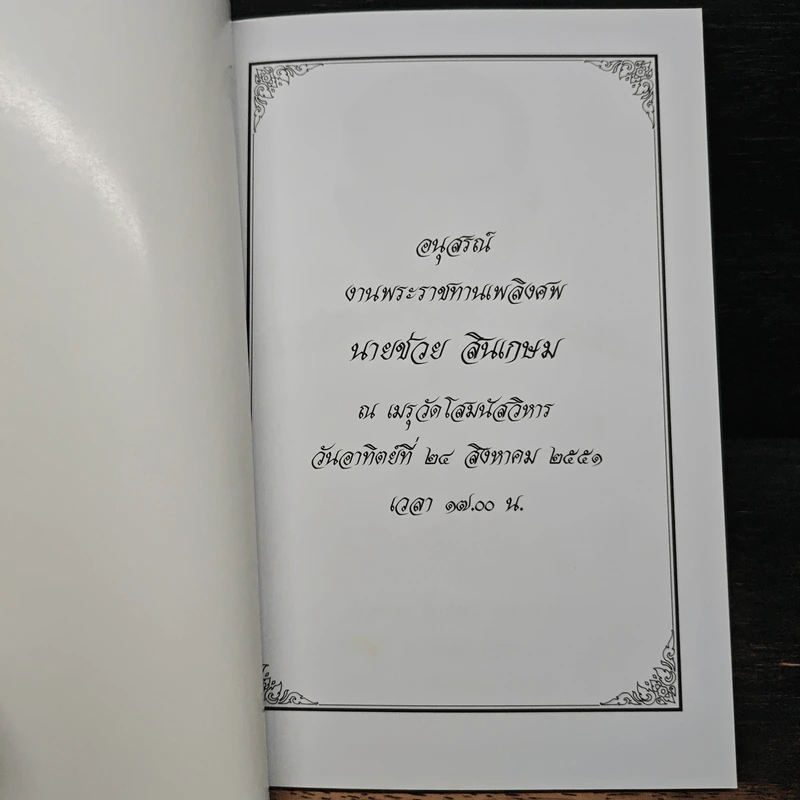 อนุสรณ์
งานพระราชทานเพลิงศพ
นายช่วย สินเกษม
ณ เมรุวัดโสมนัสวิหาร
วันอาทิตย์ที่ ๒๔ สิงหาคม ๒๕๕๑
เวลา ๑๗.๐๐ น.